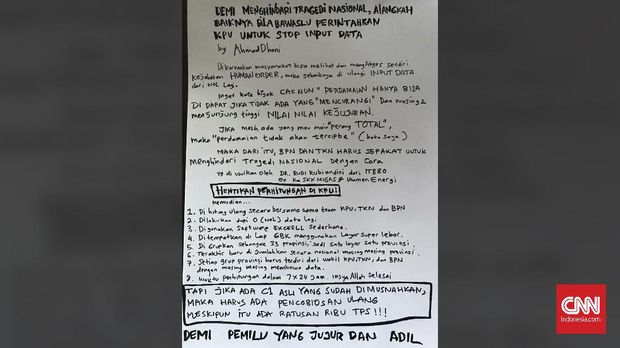 DEMI MENGHINDARI TRAGEDI NASIONAL, ALANGKAH
BAIKNYA BILA BAWASLU PERINTAHKAN
KPU UNTUK STOP INPUT DATA
by Ahmad Dhani
Dikarenakan masyarakat bisa melihat dan menghayati sendiri
kejahatan HUMAN ORDER, maka sebaiknya di ulangi INPUT DATA
dari NOL Lagi.
Ingat kata bijak CAK NUN "PERDAMAIAN HANYA BISA
DI DAPAT JIKA TIDAK ADA YANG "MENCURANGI" DAN masing2
menjunjung tinggi NILAI NILAI KEJUJURAN.
JIKA masih ada yang mau main "perang TOTAL",
maka "perdamaian tidak akan tercipta" (kata saya)
MAKA DARI ITU, BPN DAN TKN HARUS SEPAKAT UNTUK
menghindari Tragedi NASIONAL Dengan Cara
yg di usulkan oleh DR. RUDI Rubiandini dari ITB80
ex Ka SKK MIGAS & Wamen Energi
HENTIKAN PERHITUNGAN DI KPU!
Kemudian...
1. Di hitung ulang secara bersama sama team KPU, TKN dan BPN
2. Dilakukan dari 0 (NOL) data lagi.
3. Digunakan Software EXCELL Sederhana.
4. Di tempatkan di Lap GBK menggunakan Layar Super lebar.
5. Di Grupkan sebanyak 33 propinsi, jadi satu layar satu provinsi.
6. Terakhir baru di jumlahkan secara nasional masing masing provinsi.
7. Setiap grup provinsi harus terdiri dari wakil KPU, TKN, dan BPN
dengan masing masing membawa data.
8. Waktu perhitungan dalam 7x24 jam insya Allah selesai
TAPI JIKA ADA C1 ASLI YANG SUDAH DI MUSNAHKAN,
MAKA HARUS ADA PENCOBLOSAN ULANG
MESKIPUN ITU ADA RATUSAN RIBU TPS!!!
DEMI PEMILU YANG JUJUR DAN ADIL
CNN
Indonesia.com